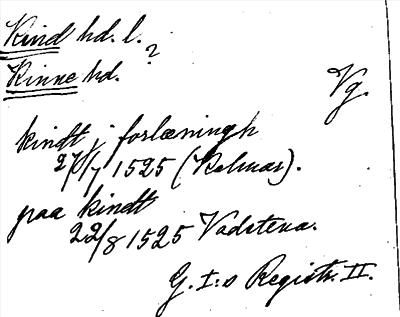 Kind hd. l.
?
Kinne hd.
Vg.
kindt j forlæningh
27/7 1525 (Kalmar).
paa kindt
22/8 1525 Vadstena.
G. I:s Registr. II.